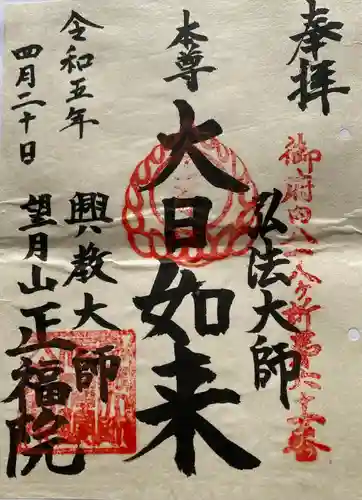 奉拝
御府内八十八ヶ所第六十二番
弘法大師
本尊
大日如来
興教大師
令和五年
四月二十日
望月山
正福院